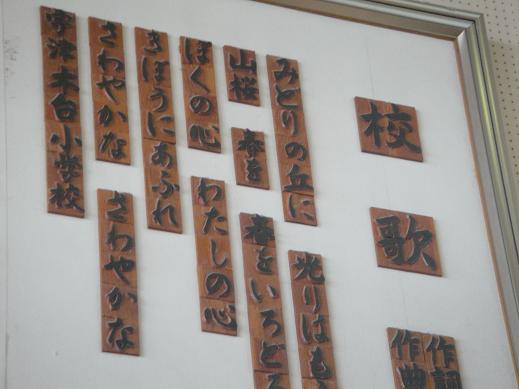 校歌
作詞
作曲
みどりの丘に 光りはも
山桜 春を 春をいろどる
ぼくの心 わたしの心
きぼうにあふれ
さわやかな さわやかな
宇津木台小学校